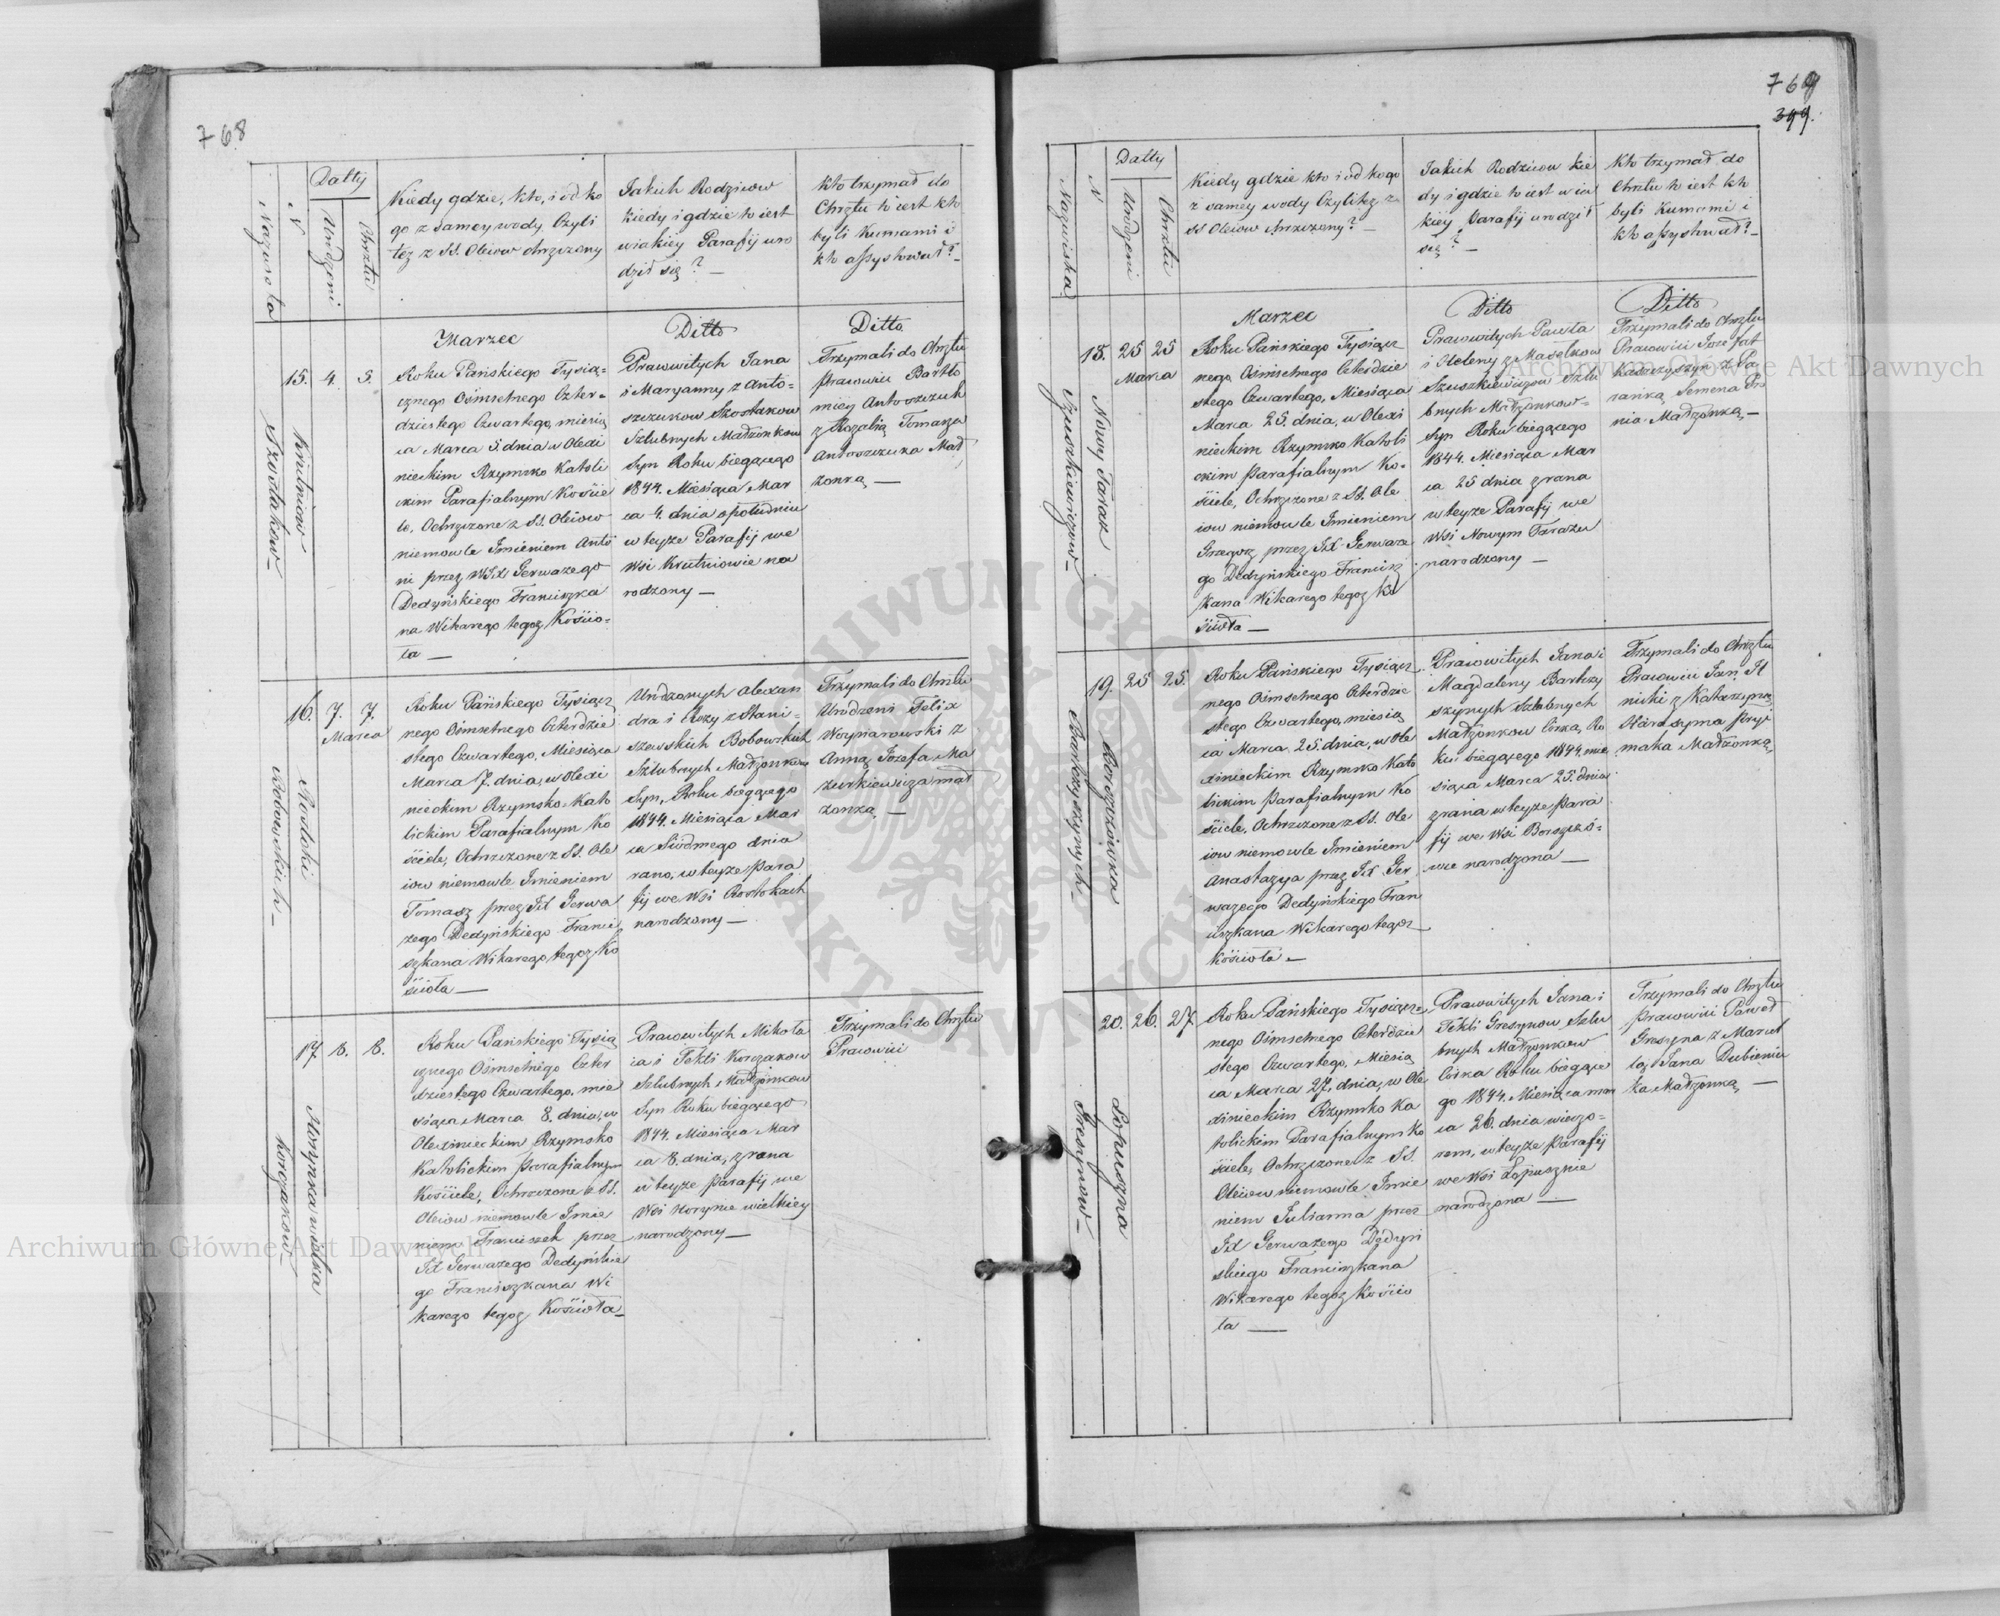 768
Nazwiska
N
Datty
Urodzeni
Chrztu
Kiedy gdzie, kto, i od ko
go z samey wody, Czyli
też z SS. Oleiow chrzczony
Jakich Rodzicow
kiedy i gdzie to iest
wiakiey Parafij uro
dził się? —
Kto trzymał do
Chrztu to iest kto
byli Kumami i
kto assystował? —
Szostakow —
Krutniow
15. 4. 5.
Marzec
Roku Pańskiego Tysią-
cznego Ośmsetnego Czter-
dziestego Czwartego, miesią
ca Marca 5. dnia w Olexi
nieckim Rzymsko Katoli
ckim Parafialnym Koście
le, Ochrzczone z SS. Oleiow
niemowle Imieniem Anto
ni przez WJX Gerwazego
Dedyńskiego Franciszka
na Wikarego tegoż Kościo-
ła —
Ditto
Prawowitych Jana
i Maryanny z Anto-
szczukow Szostakow
Szlubnych Małżonkow
Syn Roku biegącego
1844. Miesiąca Mar
ca 4. dnia o południu
w teyże Parafij we
Wsi Krutniowie na
rodzony —
Ditto
Trzymali do Chrztu
Prawowici Bartło
miey Antoszczuk
z Rozalią Tomasza
Antoszczuka Mał
żonką —
Bobowskich —
Rudski
16. 7. 7.
Marca
Roku Pańskiego Tysiącz
nego Ośmsetnego Czterdzie
stego Czwartego, Miesiąca
Marca 7. dnia, w Olexi
nieckim Rzymsko-Kato
lickim Parafialnym Ko
ściele, Ochrzczone z SS. Ole
iow niemowle Imieniem
Tomasz przez JX Gerwa
zego Dedyńskiego Franci
szkana Wikarego tegoż Ko
ścioła —
Urodzonych Alexan
dra i Rozy z Stani-
szewskich Bobowskich
Szlubnych Małżonkow
Syn, Roku biegącego
1844. Miesiąca Mar
ca Siódmego dnia
rano, w teyże Para
fij we Wsi Rostokach
narodzony —
Trzymali do Chrztu
Urodzeni Felix
Woynarowski z
Anną Jozefa Ma
zurkiewicza mał
żonką —
Korczakow —
17. 8. 8.
Roku Pańskiego Tysią
cznego Ośmsetnego Czter
dziestego Czwartego, mie
siąca Marca 8. dnia, w
Olexinieckim Rzymsko
Katolickim Parafialnym
Kościele, Ochrzczone z SS.
Oleiow niemowle Imie
niem Franciszek przez
JX Gerwazego Dedyńskie
go Franciszkana Wi
karego tegoż Kościoła —
Prawowitych Mikoła
ia i Tekli Korczakow
Szlubnych Małżonkow
Syn Roku biegącego
1844. Miesiąca Mar
ca 8. dnia, z rana
w teyże Parafij we
Wsi Horynce wielkiey
narodzony —
Trzymali do Chrztu
Prawowici
769
399.
Nazwiska
N
Datty
Urodzeni
Chrztu
Kiedy gdzie kto i od kogo
z samey wody Czyli też z
SS Oleiow chrzczony? —
Jakich Rodzicow kie
dy i gdzie to iest w ia
kiey Parafij urodził
się? —
Kto trzymał do
Chrztu to iest kto
byli Kumami i
kto assystował? —
Szuszkiewiczow —
Nowy Taraż
25 25
Marca
Marzec
Roku Pańskiego Tysiącz
nego Ośmsetnego Czterdzie
stego Czwartego, Miesiąca
Marca 25. dnia, w Olexi
nieckim Rzymsko Katoli
ckim Parafialnym Ko-
ściele, Ochrzczone z SS. Ole
iow niemowle Imieniem
Grzegorz przez JX Gerwaze
go Dedyńskiego Francisz
kana Wikarego tegoż Ko
ścioła —
Ditto
Prawowitych Pawła
i Heleny z
Szuszkiewiczow Szlu
bnych Małżonkow
Syn Roku biegącego
1844. Miesiąca Mar
ca 25 dnia z rana
w teyże Parafij we
Wsi Nowym Tarażu
narodzony —
Ditto
Trzymali do Chrztu
Prawowici Jozefat
z Pa
ranką Semena
Małżonką —
Bartoszszynych
Borszczówka
19. 25 25.
Roku Pańskiego Tysiącz
nego Ośmsetnego Czterdzie
stego Czwartego, miesią
ca Marca 25. dnia, w Ole
xinieckim Rzymsko Kato
lickim Parafialnym Ko
ściele, Ochrzczone z SS. Ole
iow niemowle Imieniem
Anastazya przez JX Ger
wazego Dedyńskiego Fran
ciszkana Wikarego tegoż
Kościoła —
Prawowitych Jana i
Magdaleny Bartosz
szynych Szlubnych
Małżonkow Córka, Ro
ku biegącego 1844. mie
siąca Marca 25. dnia
z rana w teyże Para
fij we Wsi Borszczó-
wce narodzona —
Trzymali do Chrztu
Prawowici Jan
z Katarzyną
Harasyma Pryy
maka Małżonką
Gresynow —
Łopuszna
20. 26. 27
Roku Pańskiego Tysiącz
nego Ośmsetnego Czterdzie
stego Czwartego, Miesią
ca Marca 27. dnia, w Ole
xinieckim Rzymsko Ka
tolickim Parafialnym Ko
ściele, Ochrzczone z SS.
Oleiow niemowle Imie
niem Julianna przez
JX Gerwazego Dedyń
skiego Franciszkana
Wikarego tegoż Kościo
ła —
Prawowitych Jana i
Tekli Gresynow Szlu
bnych Małżonkow
Córka Roku biegące
go 1844. Miesiąca Mar
ca 26. dnia wieczo-
rem, w teyże Parafij
we Wsi Łopusznie
narodzona —
Trzymali do Chrztu
Prawowici Paweł
Gresyna z Marcel
lą Jana Dubienie
ka Małżonką —
Archiwum Główne Akt Dawnych
Archiwum Główne Akt Dawnych